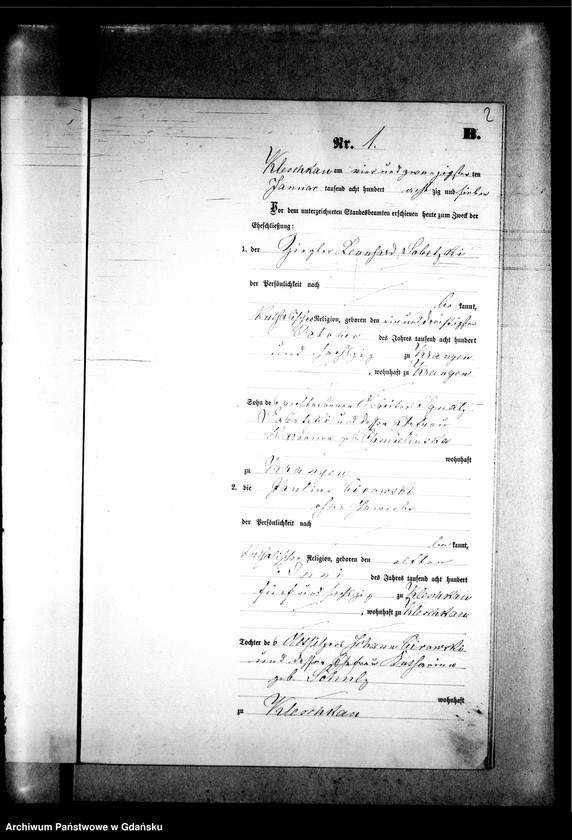 2
B.
Nr. 1.
Kleschkau am vier und zwanzigsten ten
Januar tausend acht hundert achtzig und sieben
Vor dem unterzeichneten Standesbeamten erschienen heute zum Zweck der
Eheschließung:
1. der Ziegler Leonhard Sobetzki
der Persönlichkeit nach
be kannt,
katholischer Religion, geboren den ein und dreißigsten
October des Jahres tausend acht hundert
und sechzig zu Krangen
, wohnhaft zu Krangen
Sohn des verstorbenen Arbeiter Ignatz
Sobetzki und dessen Ehefrau
geb.
wohnhaft
zu Krangen
2. die Pauline Cirowski
ohne Gewerbe
der Persönlichkeit nach
be kannt,
katholischer Religion, geboren den elften
Juni des Jahres tausend acht hundert
fünf und sechzig zu Kleschkau
, wohnhaft zu Kleschkau
Tochter des Altsitzers Johann Cirowski
und dessen Ehefrau Katharina
geb. Schulz
wohnhaft
zu Kleschkau
Archiwum Państwowe w Gdańsku